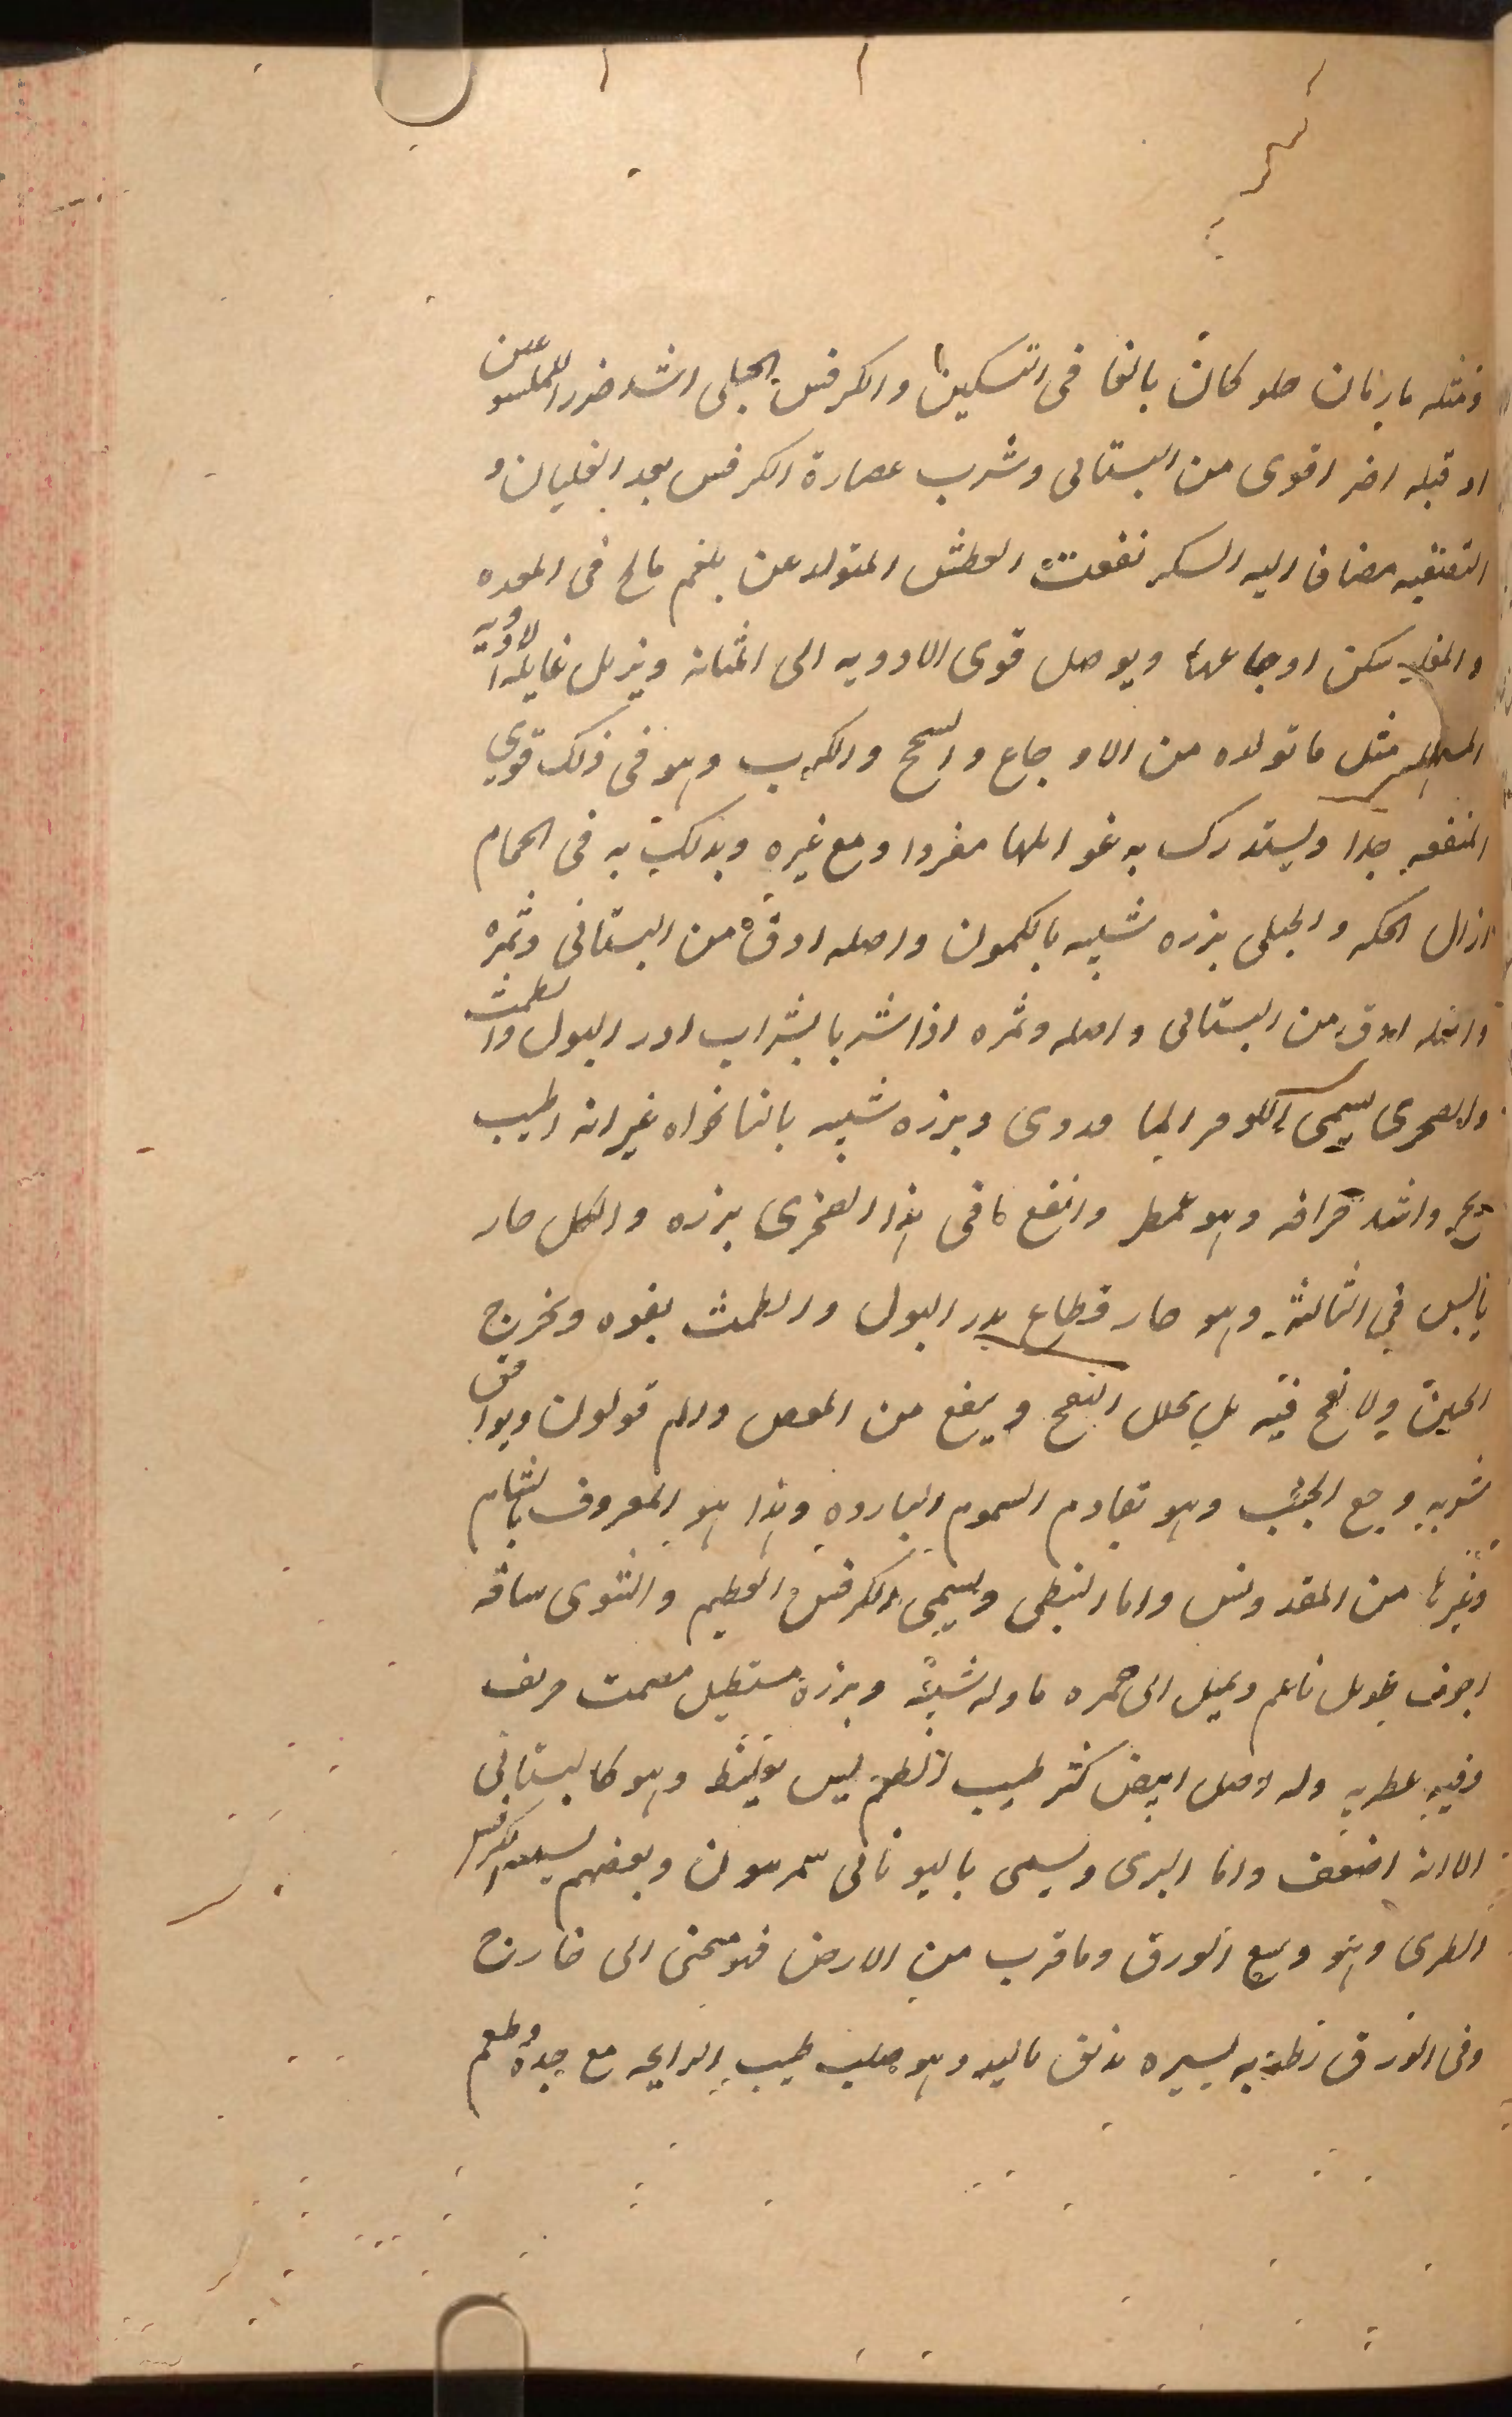 ومثله ما رمان حلو كان بالغا فى التسكين والكرفس الجبلى اشد ضررا للملسوعين
او قبله اضر اقوى من البستانى وشرب عصارة الكرفس بعد الغليان و
التنقيه مضاف اليه السكر نفعت العطش المتولد عن بلغم مالح فى المعده
والمغلى سكن اوجاعها ويوصل قوى الادويه الى المثانه ويزيل غايلة الادويه
المسهله مثل ما تولده من الاوجاع والسحج والكرب وهو فى ذلك قوي
المنفعه جدا ويستدرك به غوايلها مفردا ومع غيره ويدلك به فى الحمام
ازال الحكه والجبلى بزره شبيه بالكمون واصله ادق من البستانى وثمره
واصله ادق من البستانى واصله وثمره اذا شربا بشراب ادر البول والطمث
والصخرى يسمى وبزره شبيه بالنانخواه غير انه اطيب
ريح واشد حرافه وهو عطر وانفع ما فى هذا الصخرى بزره والكل حار
يابس فى الثالثة وهو حار قطاع يدر البول والطمث بقوه ويخرج
الجنين ولا نفخ فيه بل يحلل النفخ وينفع من المغص والم قولون ويوافق
شربه وجع الجنب وهو يقاوم السموم البارده وهذا هو المعروف بالشام
وغيرها من المقدونس واما النبطى ويسمى الكرفس العظيم والشتوى ساقه
اجوف طويل ناعم ويميل الى حمره ما وله شبيه وبزره مستطيل مصمت حريف
وفيه عطريه وله اصل ابيض كثر طيب الطعم ليس بغليظ وهو كالبستانى
الا انه اضعف واما البرى ويسمى باليونانى سمرسون وبعضهم يسميه الكرفس
الطرى وهو وسيع الورق وما قرب من الارض فهو منحنى الى خارج
وفى الورق رطوبه يسيره تدبق باليد وهو صلب طيب الرايحه مع حدة وطعم